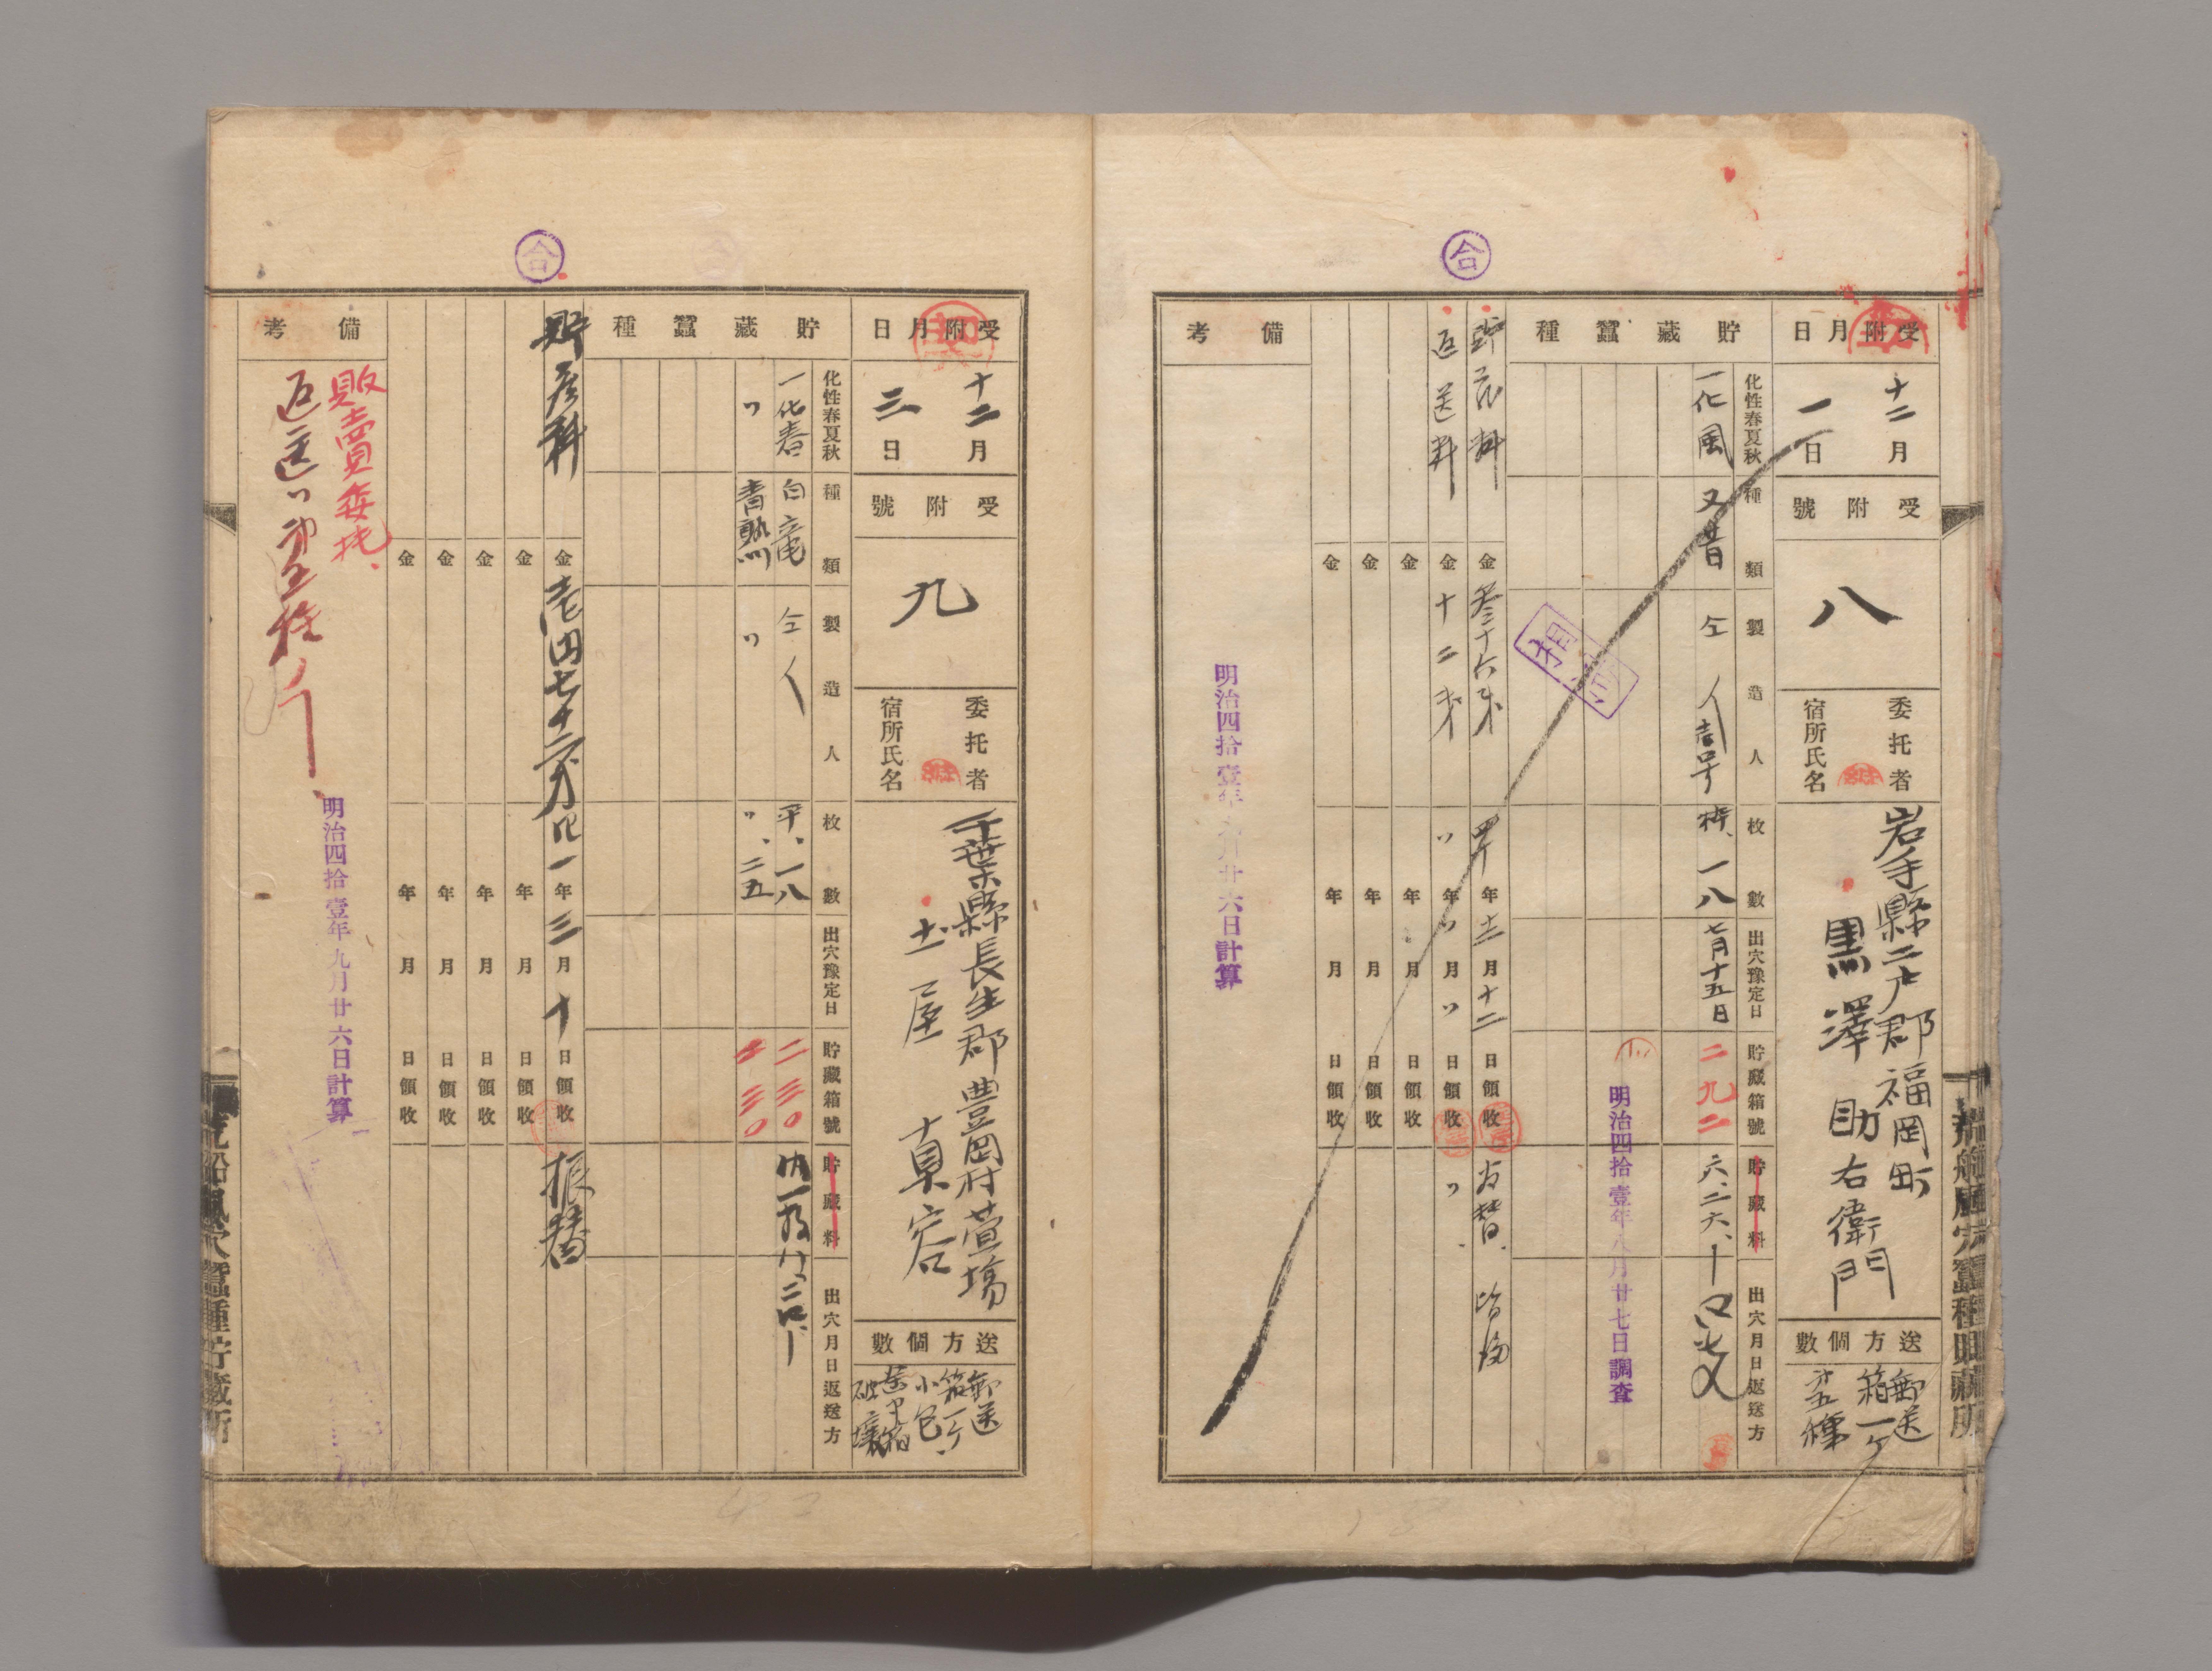 受附月日
十二月
一日
受附號
八
委托者
宿所氏名
岩手縣二戸郡福岡町
黒澤助右衛門
送方個數
郵送
箱一ケ
貯藏蠶種
化性春夏秋
種類
製造人
枚數
出穴豫定日
貯藏箱號
貯藏料
出穴月日返送方
一化風
又昔
仝人
一八
七月十五日
二九二
六、二六、
明治四拾壹年八月廿七日調査
貯藏料
金
年
十二月十二日領收
為替
返送料
金十二
〃年〃月〃日領收
〃
金
年月日領收
金
年月日領收
金
年月日領收
備考
明治四拾壹年九月廿六日計算
合
受附月日
十二月
三日
受附號
九
委托者
宿所氏名
千葉縣長生郡豊岡村萱場
土屋真容
送方個數
郵送
箱一ケ
小包
破壊
貯藏蠶種
化性春夏秋
種類
製造人
枚數
出穴豫定日
貯藏箱號
貯藏料
出穴月日返送方
一化春
白竜
仝人
平、一八
二三〇
〃
青熟
〃
〃、二五
三〇
貯藏料
金壱円七十二銭
四一年三月十日領收
振替
金
年月日領收
金
年月日領收
金
年月日領收
金
年月日領收
備考
販賣委托、
返送
明治四拾壹年九月廿六日計算
合
荒船風穴蠶種貯藏所